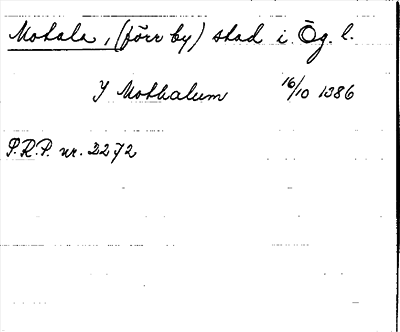 Motala, (förr by) stad i Ög. l.
J Mothalum 16/10 1386
S.R.P. nr. 2272